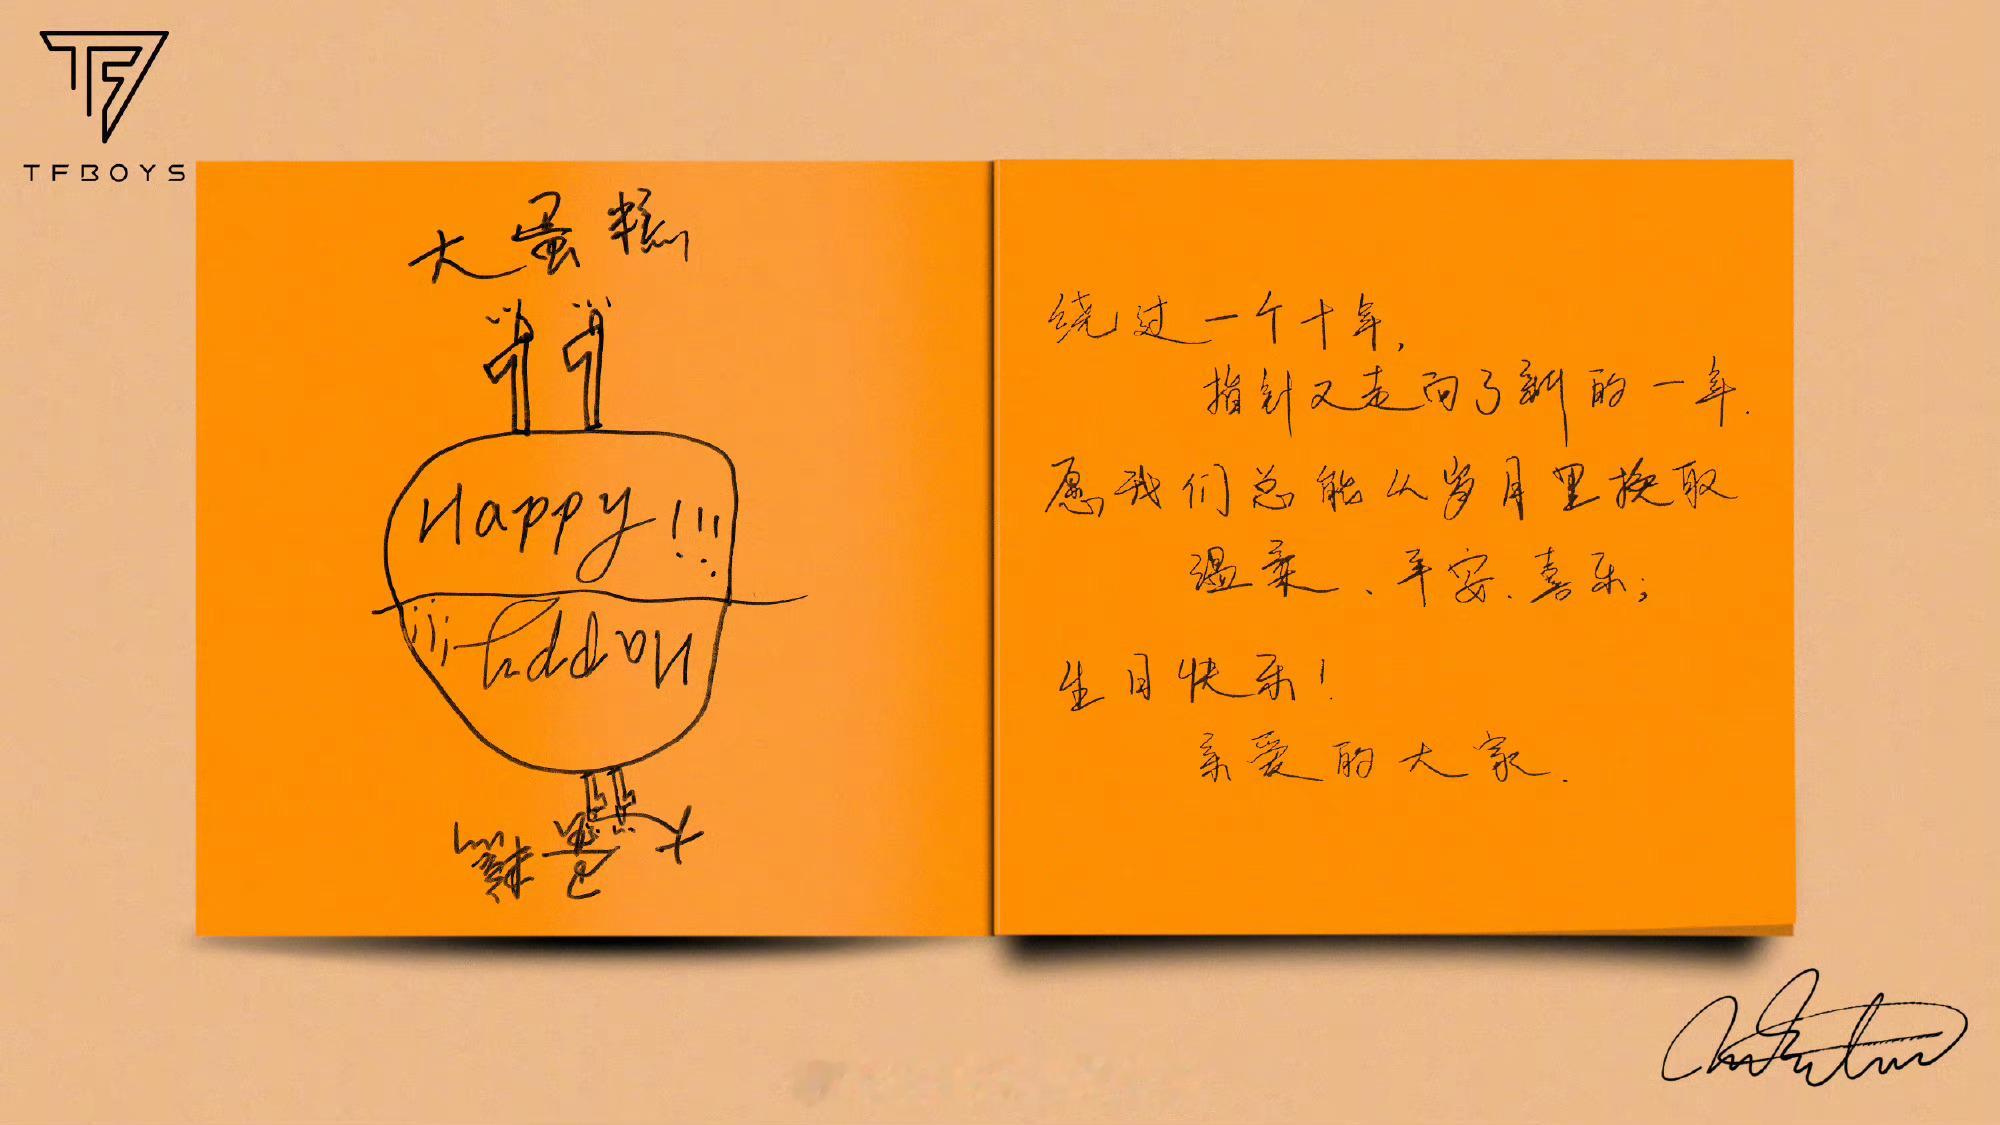 TFBOYS
大蛋糕
Happy!!!
Happy!!!
大蛋糕
绕过一个十年，
指针又走向了新的一年.
愿我们总能从岁月里换取
温柔、平安、喜乐；
生日快乐！
亲爱的大家.